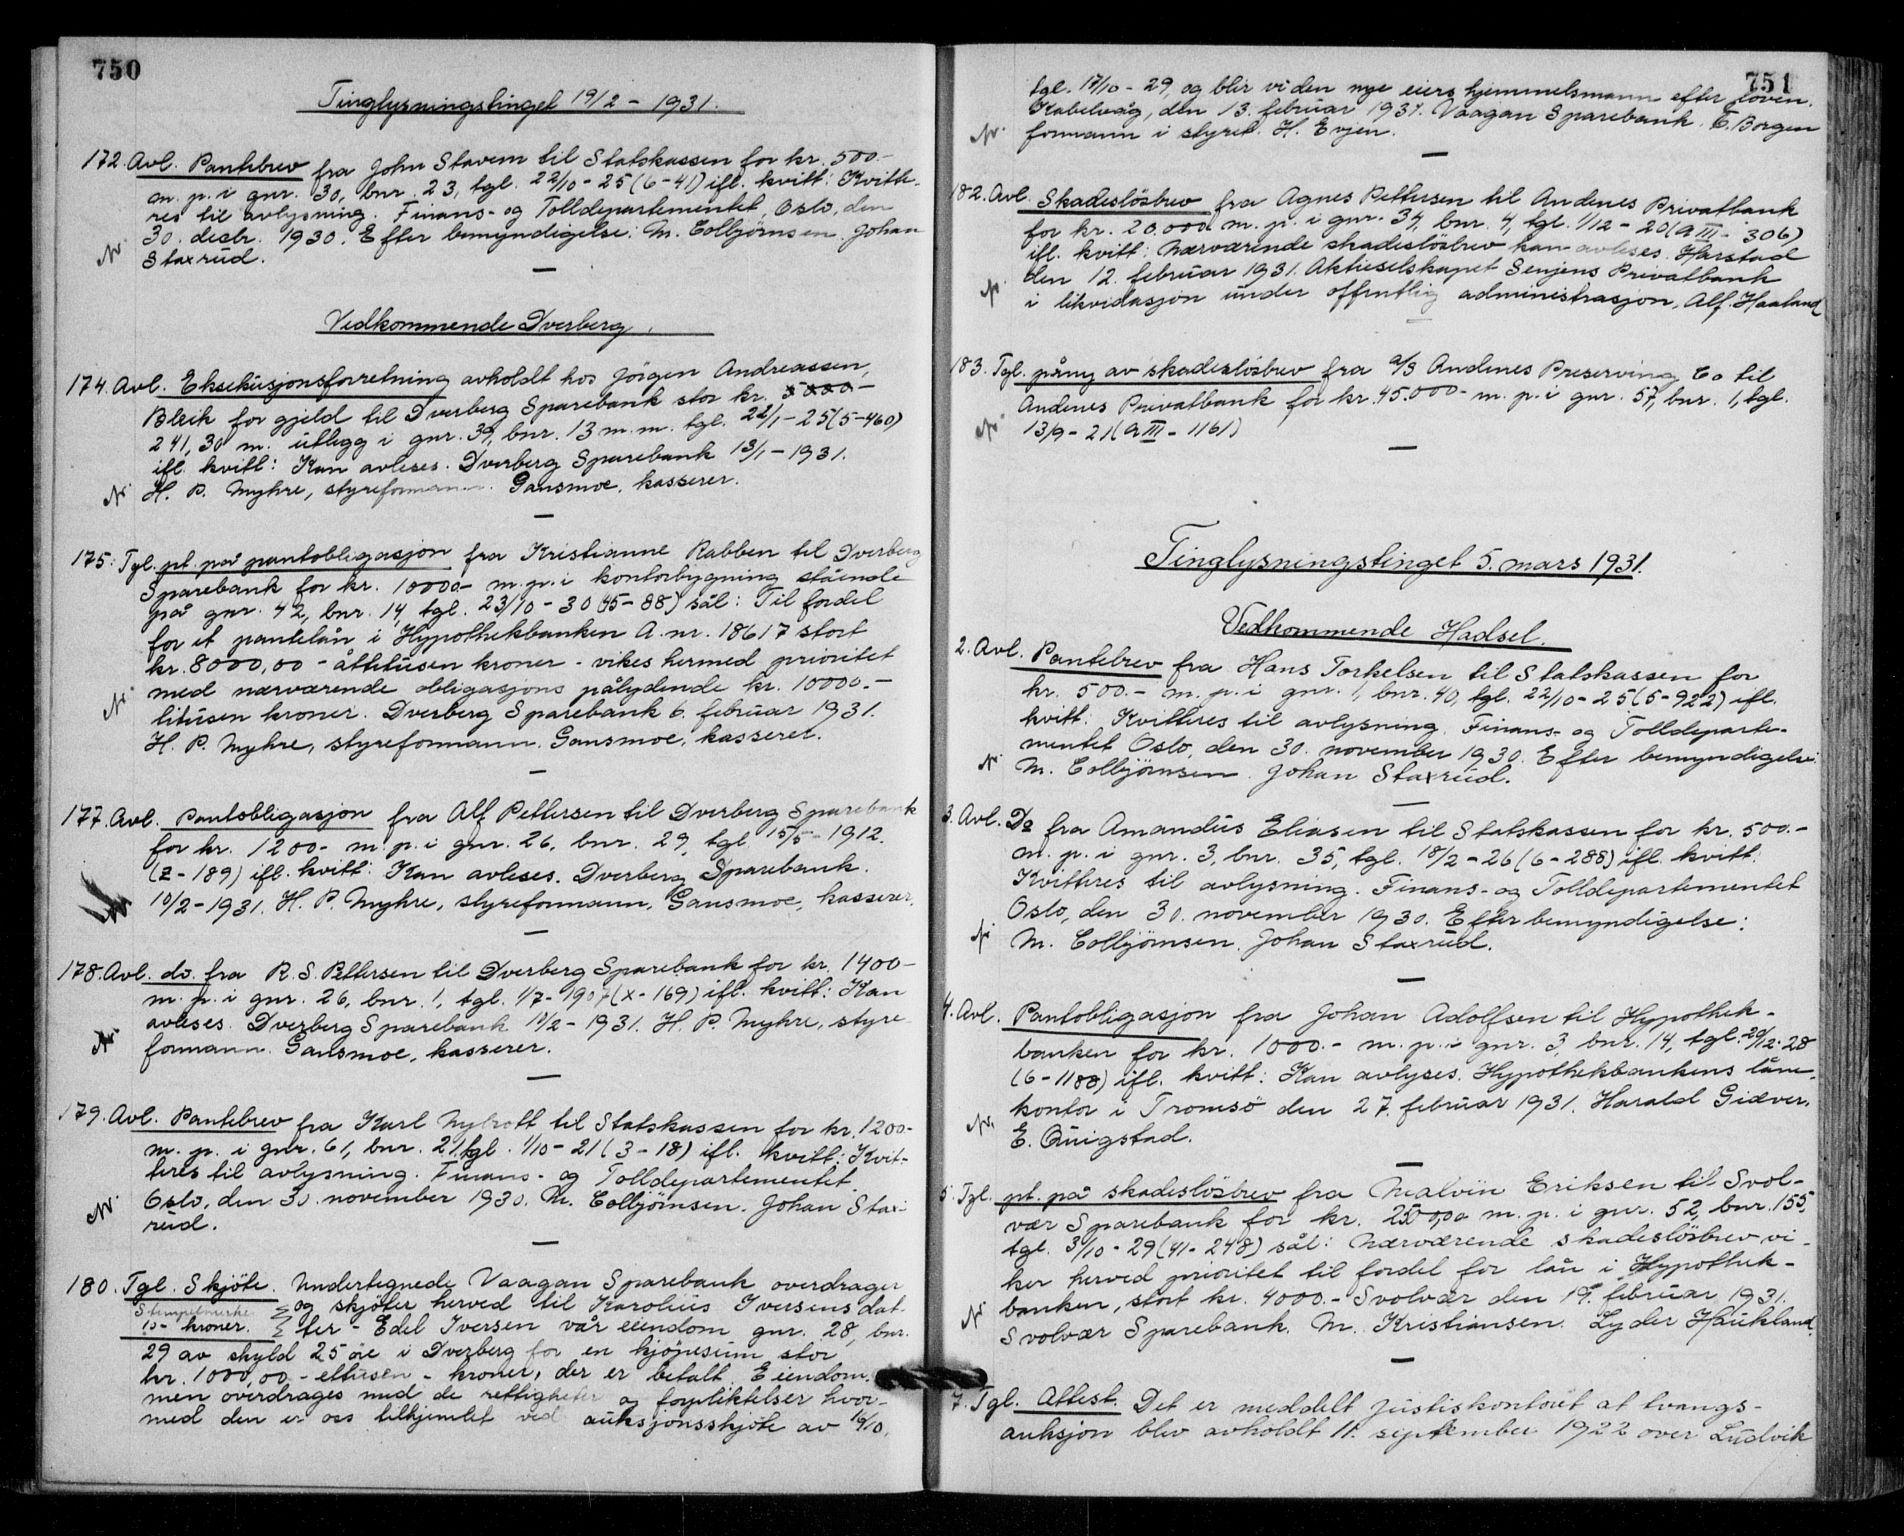 750
Tinglysningstinget 19/2 - 1931.
172. Avl. Pantebrev fra John Stavem til Statskassen for kr. 500.-
m. p. i gnr. 30, bnr. 23, tgl. 22/10 - 25 (6-41) ifl. kvitt: Kvitte-
res til avlysning. Finans- og Tolldepartementet, Oslo, den
30. desbr. 1930. Efter bemyndigelse: M. Colbjörnsen. Johan
Staxrud.
Vedkommende Dverberg.
174. Avl. Eksekusjonsforretning avholdt hos Jörgen Andreassen,
Bleik for gjeld til Dverberg Sparebank stor kr.
241,30 m. utlegg i gnr. 39, bnr. 13 m. m. tgl. 22/1 - 25 (5-460)
ifl. kvitt: Kan avleses. Dverberg Sparebank 13/1 - 1931.
H. P. Myhre, styreformann. Gansmoe, kasserer.
175. Tgl. pt. på pantobligasjon fra Kristianne Rabben til Dverberg
Sparebank for kr. 10000.- m. p. i kontorbygning stående
på gnr. 42, bnr. 14, tgl. 23/10 - 30 (45-88) sål: Til fordel
for et pantelån i Hypothekbanken A. nr. 18617 stort
kr. 8000,00 - åttetusen kroner - vikes hermed prioritet
med nærværende obligasjons pålydende kr. 10000.-
titusen kroner. Dverberg Sparebank 6. februar 1931.
H. P. Myhre, styreformann. Gansmoe, kasserer.
177. Avl. Pantobligasjon fra Alf Pettersen til Dverberg Sparebank
for kr. 1200- m. p. i gnr. 26, bnr. 29, tgl. 15/5 - 1912.
(Z-189) ifl. kvitt: Kan avleses. Dverberg Sparebank.
10/2 - 1931. H. P. Myhre, styreformann, Gansmoe, kasserer.
178. Avl. do. fra R. S. Pettersen til Dverberg Sparebank for kr. 1400-
m. p. i gnr. 26, bnr. 1, tgl. 1/7 - 1907 (X-169) ifl. kvitt: Kan
avleses. Dverberg Sparebank 10/2 - 1931. H. P. Myhre, styre-
formann. Gansmoe, kasserer.
179. Avl. Pantebrev fra Karl Nybrott til Statskassen for kr. 1200-
m. p. i gnr. 61, bnr. 21, tgl. 1/10 - 21 (3-18) ifl. kvitt: Kvit-
teres til avlysning. Finans- og Tolldepartementet.
Oslo, den 30. november 1930. M. Colbjörnsen. Johan Stax-
rud.
180. Tgl. Skjöte. Undertegnede Vaagan Sparebank overdrager
Stempelmerke og skjöter herved til Karolius Iversens dat-
10- kroner. ter - Edel Iversen vår eiendom gnr. 28, bnr.
29 av skyld 25 öre i Dverberg for en kjöpesum stor
kr. 1000,00 - ettusen - kroner, der er betalt. Eiendom-
men overdrages med de rettigheter og forpliktelser hvor-
med den er oss tilhjemlet ved auksjonsskjöte av 16/10,
751
tgl. 17/10 - 29, og blir vi den nye eiers hjemmelsmann efter loven.
Kabelvåg, den 13. februar 1931. Vaagan Sparebank. E. Borgen
formann i styret. H. Evjen.
182. Avl. Skadeslösbrev fra Agnes Pettersen til Andenes Privatbank
for kr. 20.000 m. p. i gnr. 34, bnr. 4, tgl. 1/12 - 20 (A III - 306)
ifl. kvitt: Nærværende skadeslösbrev kan avleses. Harstad
den 12. februar 1931. Aktieselskapet Senjens Privatbank
i likvidasjon under offentlig administrasjon, Alf. Haaland
183. Tgl. påny av skadeslösbrev fra A/S Andenes Preserving Co til
Andenes Privatbank for kr. 45.000- m. p. i gnr. 57, bnr. 1, tgl.
13/9 - 21 (A III - 1161)
Tinglysningstinget 5. mars 1931.
Vedkommende Hadsel.
2. Avl. Pantebrev fra Hans Torkelsen til Statskassen for
kr. 500.- m. p. i gnr. 1, bnr. 40, tgl. 22/10 - 25 (5-922) ifl.
kvitt: Kvitteres til avlysning. Finans- og Tolldeparte-
mentet Oslo, den 30. november 1930. Efter bemyndigelse:
M. Colbjörnsen. Johan Staxrud.
3. Avl. Do fra Amandus Eliasen til Statskassen for kr. 500.-
m. p. i gnr. 3, bnr. 35, tgl. 18/2 - 26 (6-288) ifl. kvitt:
Kvitteres til avlysning. Finans- og Tolldepartementet
Oslo, den 30. november 1930. Efter bemyndigelse:
M. Colbjörnsen. Johan Staxrud.
4. Avl. Pantobligasjon fra Johan Adolfsen til Hypothek-
banken for kr. 1000.- m. p. i gnr. 3, bnr. 14, tgl. 20/12 - 28
(6-1188) ifl. kvitt: Kan avlyses. Hypothekbankens låne-
kontor i Tromsö den 27. februar 1931. Harald Giæver.
E. Quigstad.
5. Tgl. pt. på skadeslösbrev fra Malvin Eriksen til Svol-
vær Sparebank for kr. 2500,00 m. p. i gnr. 52, bnr. 155,
tgl. 3/10 - 29 (41-248) sål: Nærværende skadeslösbrev vi-
ker herved prioritet til fordel for lån i Hypothek-
banken, stort kr. 4000.- Svolvær den 19. februar 1931.
Svolvær Sparebank. M. Kristiansen. Lyder Haukland.
7. Tgl. Attest. Det er meddelt Justiskontoret at tvangs-
auksjon blev avholdt 11. september 1922 over Ludvik